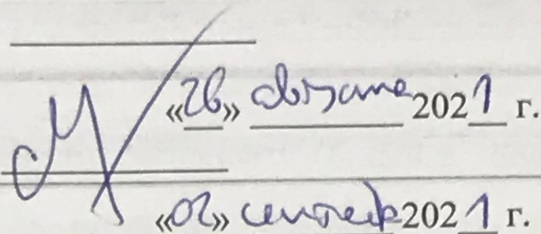 «26» августа 2021 г.
«02» сентября 2021 г.